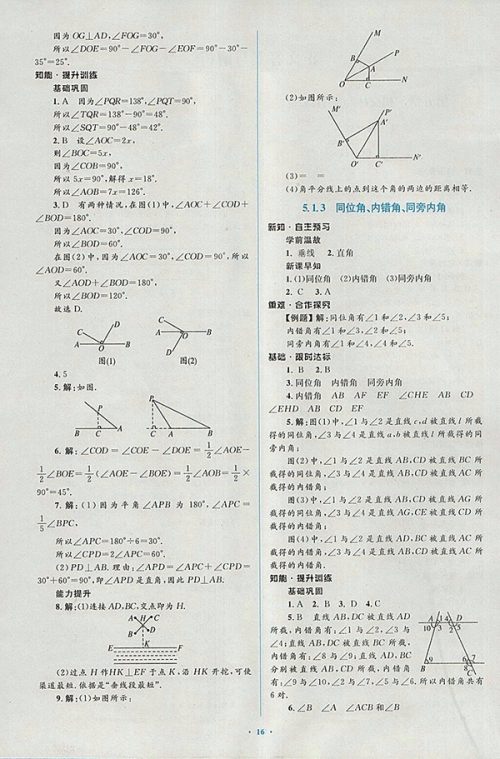 因为OG⊥AD,∠FOG=30°,
所以∠DOE=90°-∠FOG-∠EOF=90°-30°-
35°=25°.
知能·提升训练
基础巩固
1.A 因为∠PQR=138°,∠PQT=90°,
所以∠TQR=138°-90°=48°.
所以∠SQT=90°-48°=42°.
2.B 设∠AOC=2x,
则∠BOC=5x,
因为∠COB=90°,
所以5x=90°,解得x=18°.
所以∠AOB=7x=126°.
3.D 有两种情况,在图(1)中,∠AOC+∠COD+
∠BOD=180°.
因为∠AOC=30°,∠COD=90°,
所以∠BOD=60°.
在图(2)中,因为∠AOC=30°,∠COD=90°,所以
∠AOD=60°.
又∠AOD+∠BOD=180°,
所以∠BOD=120°.
故选D.
C D A O B
图(1)
D C A O B
图(2)
4.5
5.解:如图.
P B C A
P C A B
6.解:∠COD=∠COE-∠DOE=1/2∠AOE-
1/2∠BOE=1/2(∠AOE-∠BOE)=1/2∠AOB=1/2×
90°=45°.
7.解:(1)因为平角∠APB为180°,∠APC=
1/5∠BPC,
所以∠APC=180°÷6=30°.
所以∠CPD=2∠APC=60°.
(2)PD⊥AB.理由:∠APD=∠APC+∠CPD=
30°+60°=90°,即∠APD是直角,因此PD⊥AB.
能力提升
8.解:(1)连接AD,BC,交点即为H.
A C H B D
(2)过点H作HK⊥EF于点K,沿HK开挖,可使
渠道最短.依据是“垂线段最短”.
9.解:(1)如图所示:
M B P A O C N
(2)如图所示:
M′ P′ A′ B′ O′ C′ N′
(3)= =
(4)角平分线上的点到这个角的两边的距离相等.
5.1.3 同位角、内错角、同旁内角
新知·自主预习
学前温故
1.垂线 2.直角
新课早知
1.(1)同位角 (2)内错角 (3)同旁内角
2.C 3.A
重难·合作探究
【例题】解:同位角有∠1和∠2,∠3和∠5;
内错角有∠1和∠3,∠2和∠5;
同旁内角有∠1和∠4,∠4和∠5.
基础·限时达标
1.B 2.B
3.同位角 内错角 同旁内角
4.内错角 AB AF EF ∠CHE AB CD
∠EHD AB CD EF
5.解:图(1)中,∠1与∠2是直线c,d被直线l所截
得的同位角,∠3与∠4是直线a,b被直线l所截得的同
旁内角;
图(2)中,∠1与∠2是直线AB,CD被直线BC所
截得的同位角,∠3与∠4是直线AB,CD被直线AC所
截得的内错角;
图(3)中,∠1与∠2是直线AB,CD被直线AG所
截得的同位角,∠3与∠4是直线AG,CE被直线CD所
截得的内错角;
图(4)中,∠1与∠2是直线AD,BC被直线AC所
截得的内错角,∠3与∠4是直线AB,CD被直线AC所
截得的内错角.
知能·提升训练
基础巩固
1.A 2.B 3.D 4.C
5.B 直线AB,DC被直线AD
所截,内错角有:∠1与∠2,∠3与
∠4;直线AB,DC被直线BC所截,
内错角有:∠7与∠10;直线AD,BC
分别被直线AB,DC所截,内错角
有:∠9与∠10,∠2与∠7,∠5与∠6.所以内错角共有
6对.
6.∠B ∠A ∠ACB和∠B
16